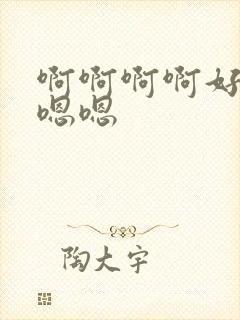 啊啊啊啊好
嗯嗯
陶大宇